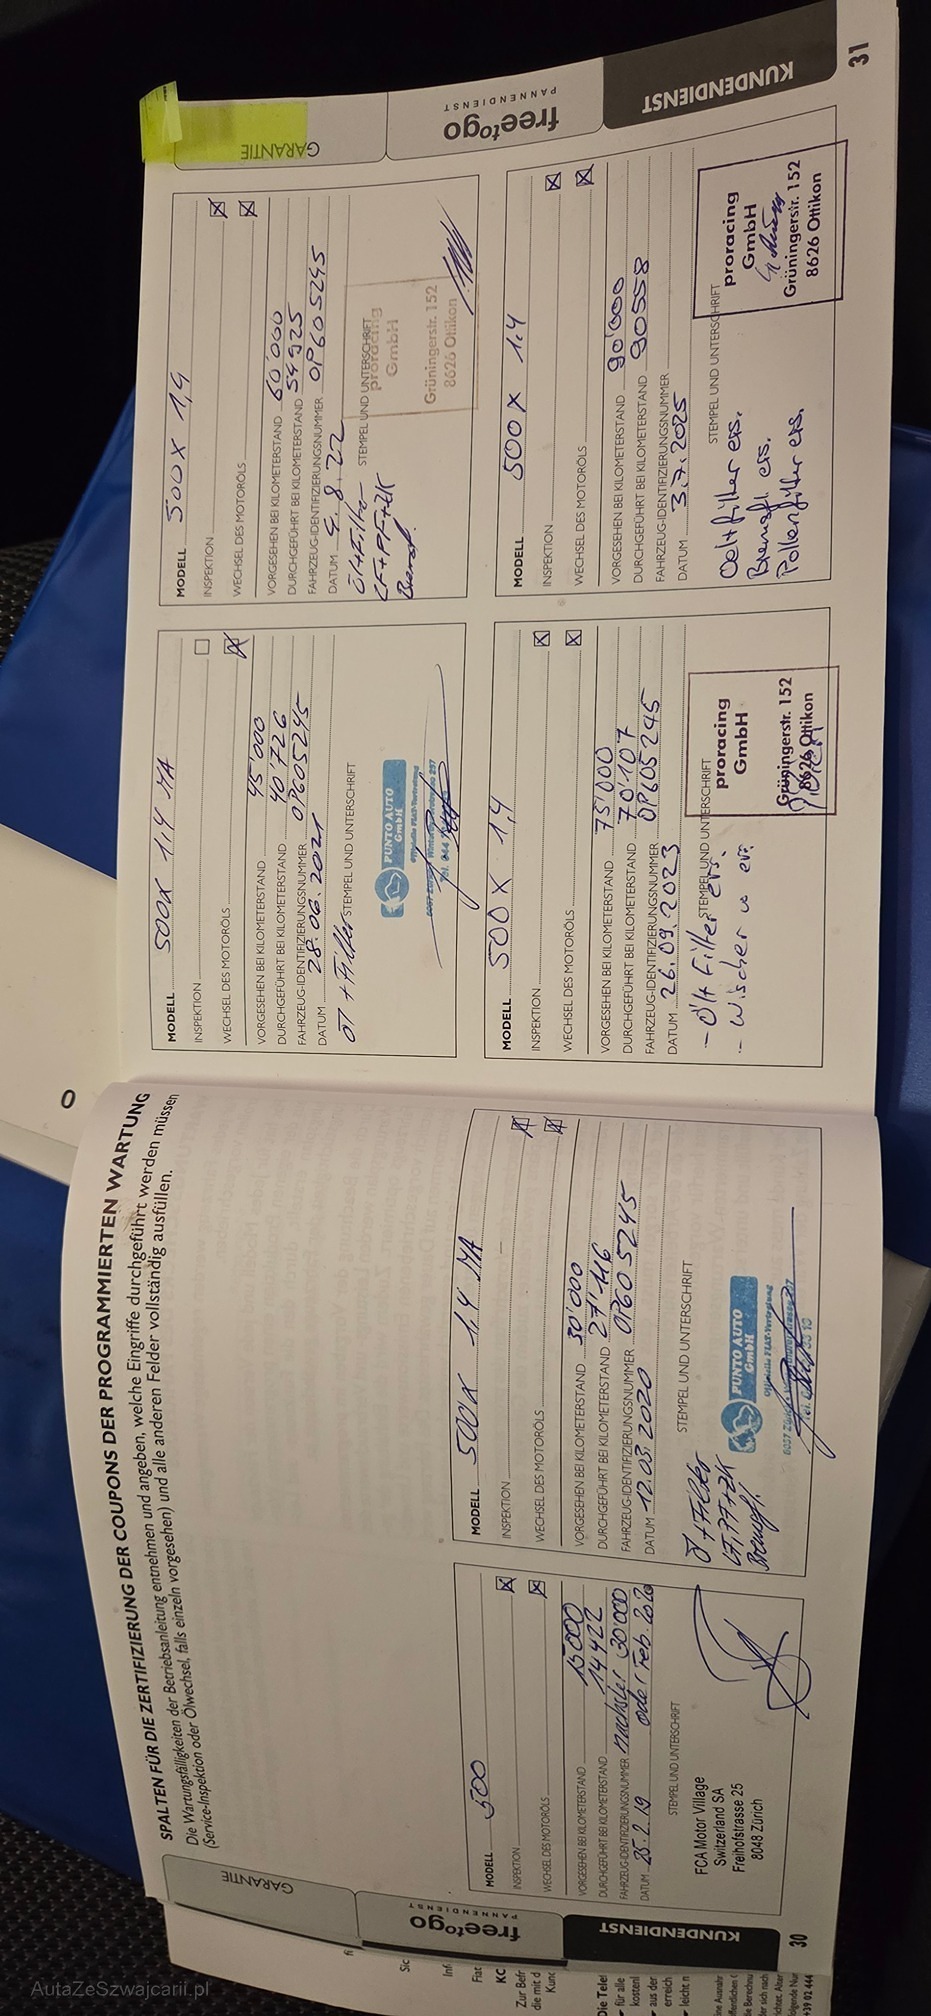 SPALTEN FÜR DIE ZERTIFIZIERUNG DER COUPONS DER PROGRAMMIERTEN WARTUNG
Die Wartungsfälligkeiten der Betriebsanleitung entnehmen und angeben, welche Eingriffe durchgeführt werden müssen
(Service-Inspektion oder Ölwechsel, falls einzeln vorgesehen) und alle anderen Felder vollständig ausfüllen.
GARANTIE
freetogo
PANNENDIENST
KUNDENDIENST
30
MODELL 500
INSPEKTION
WECHSEL DES MOTORÖLS
VORGESEHEN BEI KILOMETERSTAND 15000
DURCHGEFÜHRT BEI KILOMETERSTAND 14422
FAHRZEUG-IDENTIFIZIERUNGSNUMMER nächster 30'000
DATUM 25.2.19 oder Feb. 2020
STEMPEL UND UNTERSCHRIFT
FCA Motor Village
Switzerland SA
Freihofstrasse 25
8048 Zürich
MODELL 500X 1,4 MA
INSPEKTION
WECHSEL DES MOTORÖLS
VORGESEHEN BEI KILOMETERSTAND 30'000
DURCHGEFÜHRT BEI KILOMETERSTAND 27'116
FAHRZEUG-IDENTIFIZIERUNGSNUMMER 0P605245
DATUM 12.03.2020
STEMPEL UND UNTERSCHRIFT
Ö + Filter
LF, PF + ZK
Bremsfl.
PUNTO AUTO
GmbH
Offizielle FIAT-Vertretung
MODELL 500X 1,4 MA
INSPEKTION
WECHSEL DES MOTORÖLS
VORGESEHEN BEI KILOMETERSTAND 45'000
DURCHGEFÜHRT BEI KILOMETERSTAND 40'726
FAHRZEUG-IDENTIFIZIERUNGSNUMMER 0P605245
DATUM 28.06.2021
STEMPEL UND UNTERSCHRIFT
Öl + Filter
PUNTO AUTO
GmbH
Offizielle FIAT-Vertretung
MODELL 500X 1,4
INSPEKTION
WECHSEL DES MOTORÖLS
VORGESEHEN BEI KILOMETERSTAND 60'000
DURCHGEFÜHRT BEI KILOMETERSTAND 54925
FAHRZEUG-IDENTIFIZIERUNGSNUMMER 0P605245
DATUM 4.8.22
STEMPEL UND UNTERSCHRIFT
Öl+Filter
LF+PF+ZK
proracing
GmbH
Grüningerstr. 152
8626 Ottikon
MODELL 500X 1,4
INSPEKTION
WECHSEL DES MOTORÖLS
VORGESEHEN BEI KILOMETERSTAND 75'000
DURCHGEFÜHRT BEI KILOMETERSTAND 70'107
FAHRZEUG-IDENTIFIZIERUNGSNUMMER 0P605245
DATUM 26.09.2023
STEMPEL UND UNTERSCHRIFT
- Öl+ Filter ers.
- Wischer w ers.
proracing
GmbH
Grüningerstr. 152
8626 Ottikon
MODELL 500X 1.4
INSPEKTION
WECHSEL DES MOTORÖLS
VORGESEHEN BEI KILOMETERSTAND 90'000
DURCHGEFÜHRT BEI KILOMETERSTAND 90558
FAHRZEUG-IDENTIFIZIERUNGSNUMMER
DATUM 3.7.2025
STEMPEL UND UNTERSCHRIFT
Oel+filter ers.
Bremsfl. ers.
Pollenfilter ers.
proracing
GmbH
Grüningerstr. 152
8626 Ottikon
GARANTIE
freetogo
PANNENDIENST
KUNDENDIENST
31
AutaZeSzwajcarii.pl